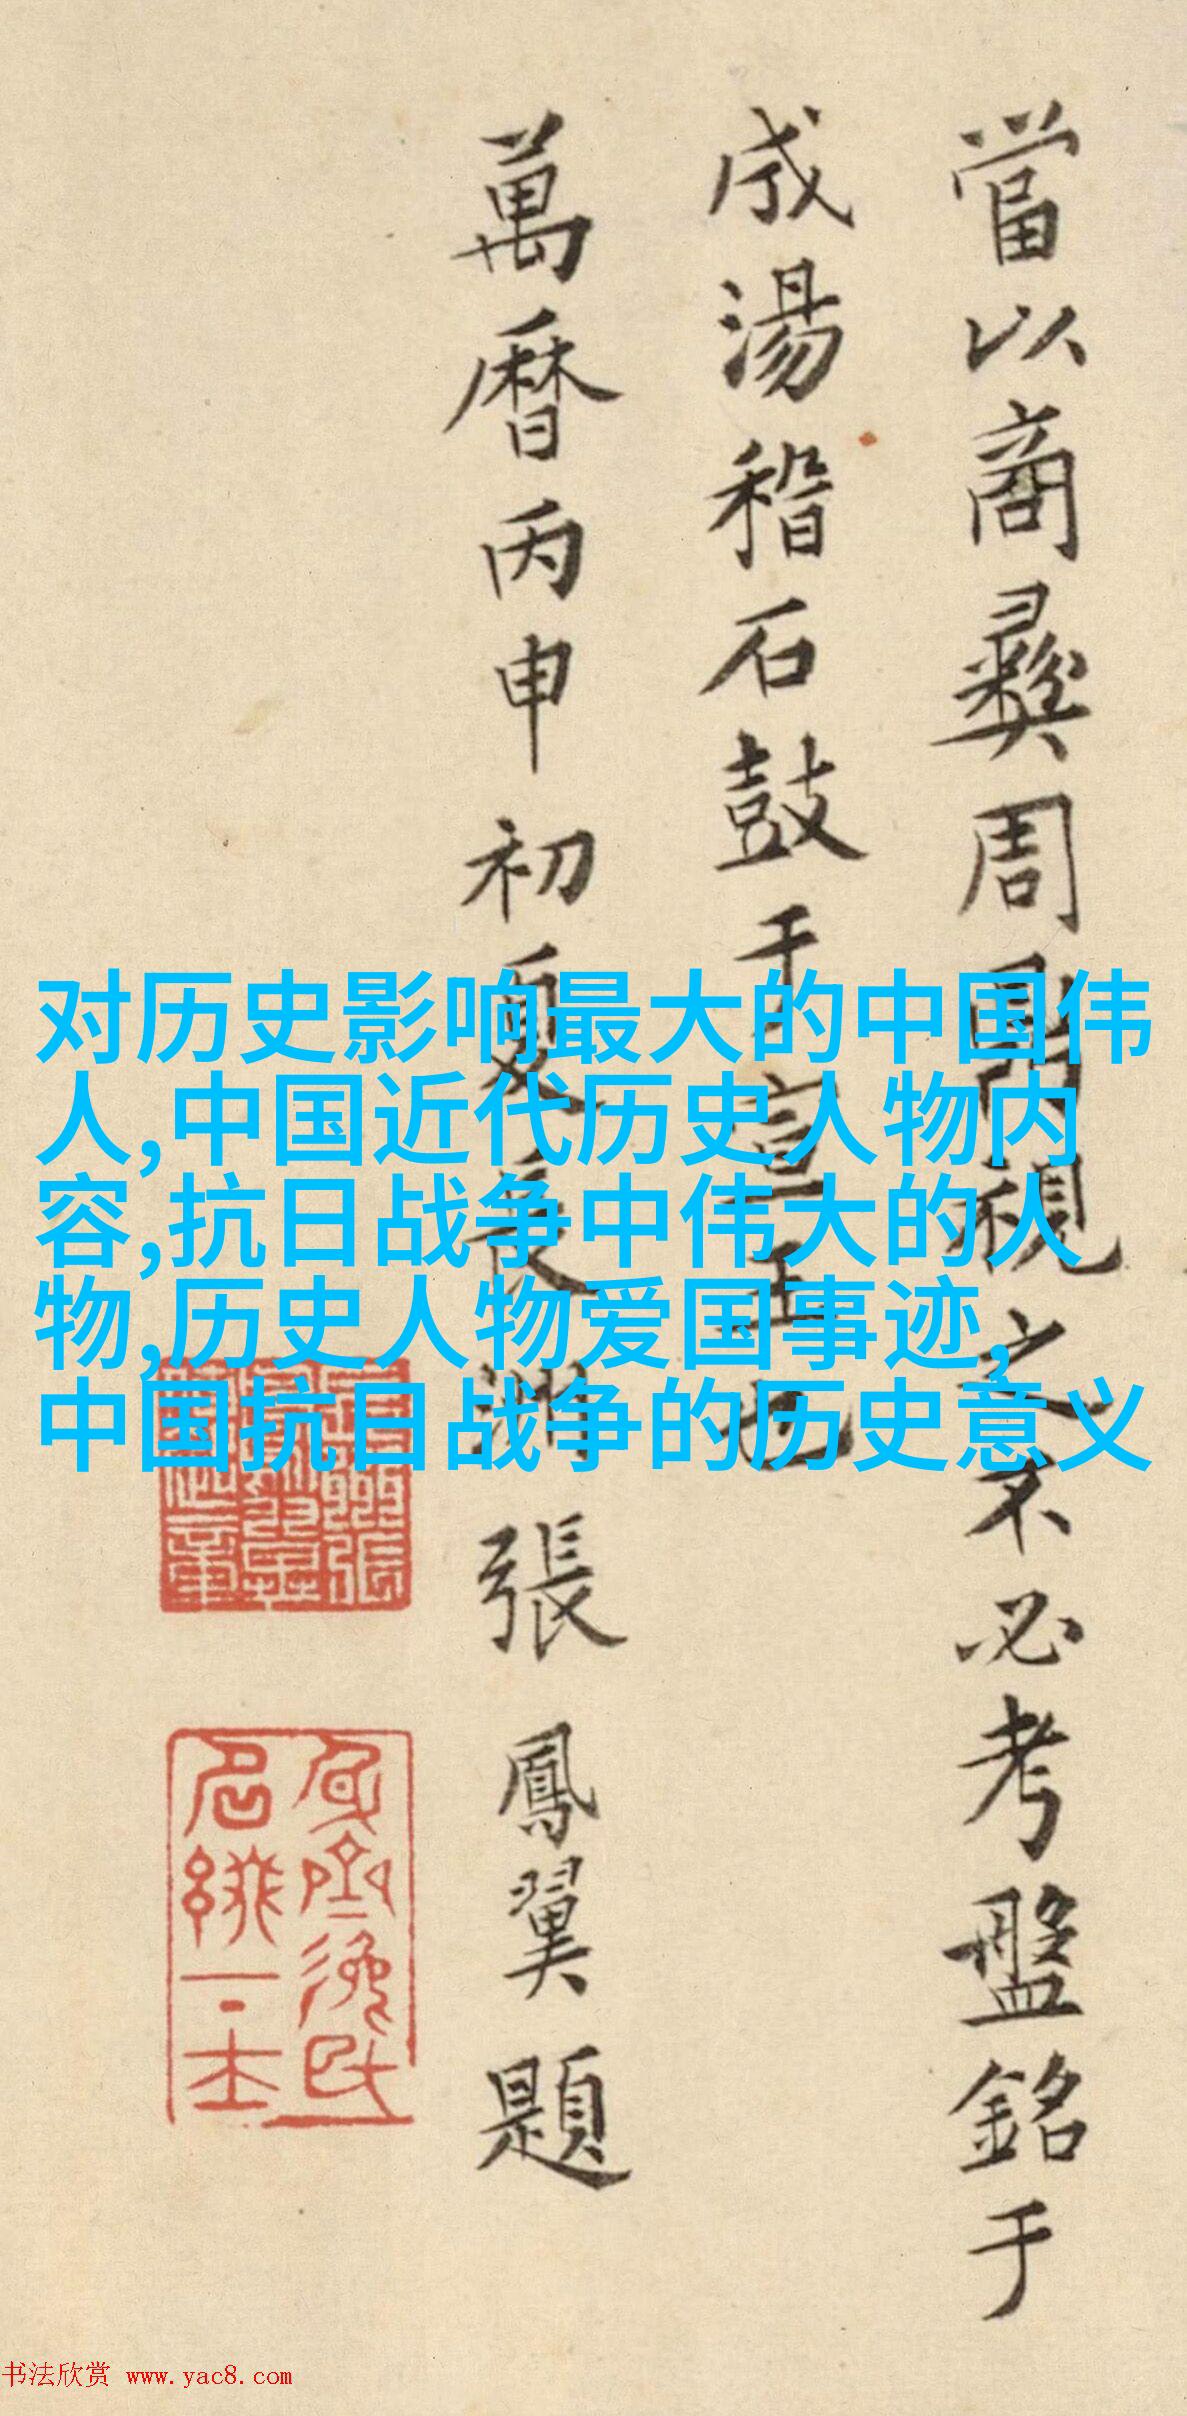 當以商彝周鼎視之不必考盤銘于
成湯稽石鼓于宣王也
萬曆丙申初夏長洲張鳳翼題
对历史影响最大的中国伟
人,中国近代历史人物内
容,抗日战争中伟大的人
物,历史人物爱国事迹,
中国抗日战争的历史意义
书法欣赏 www.yac8.com